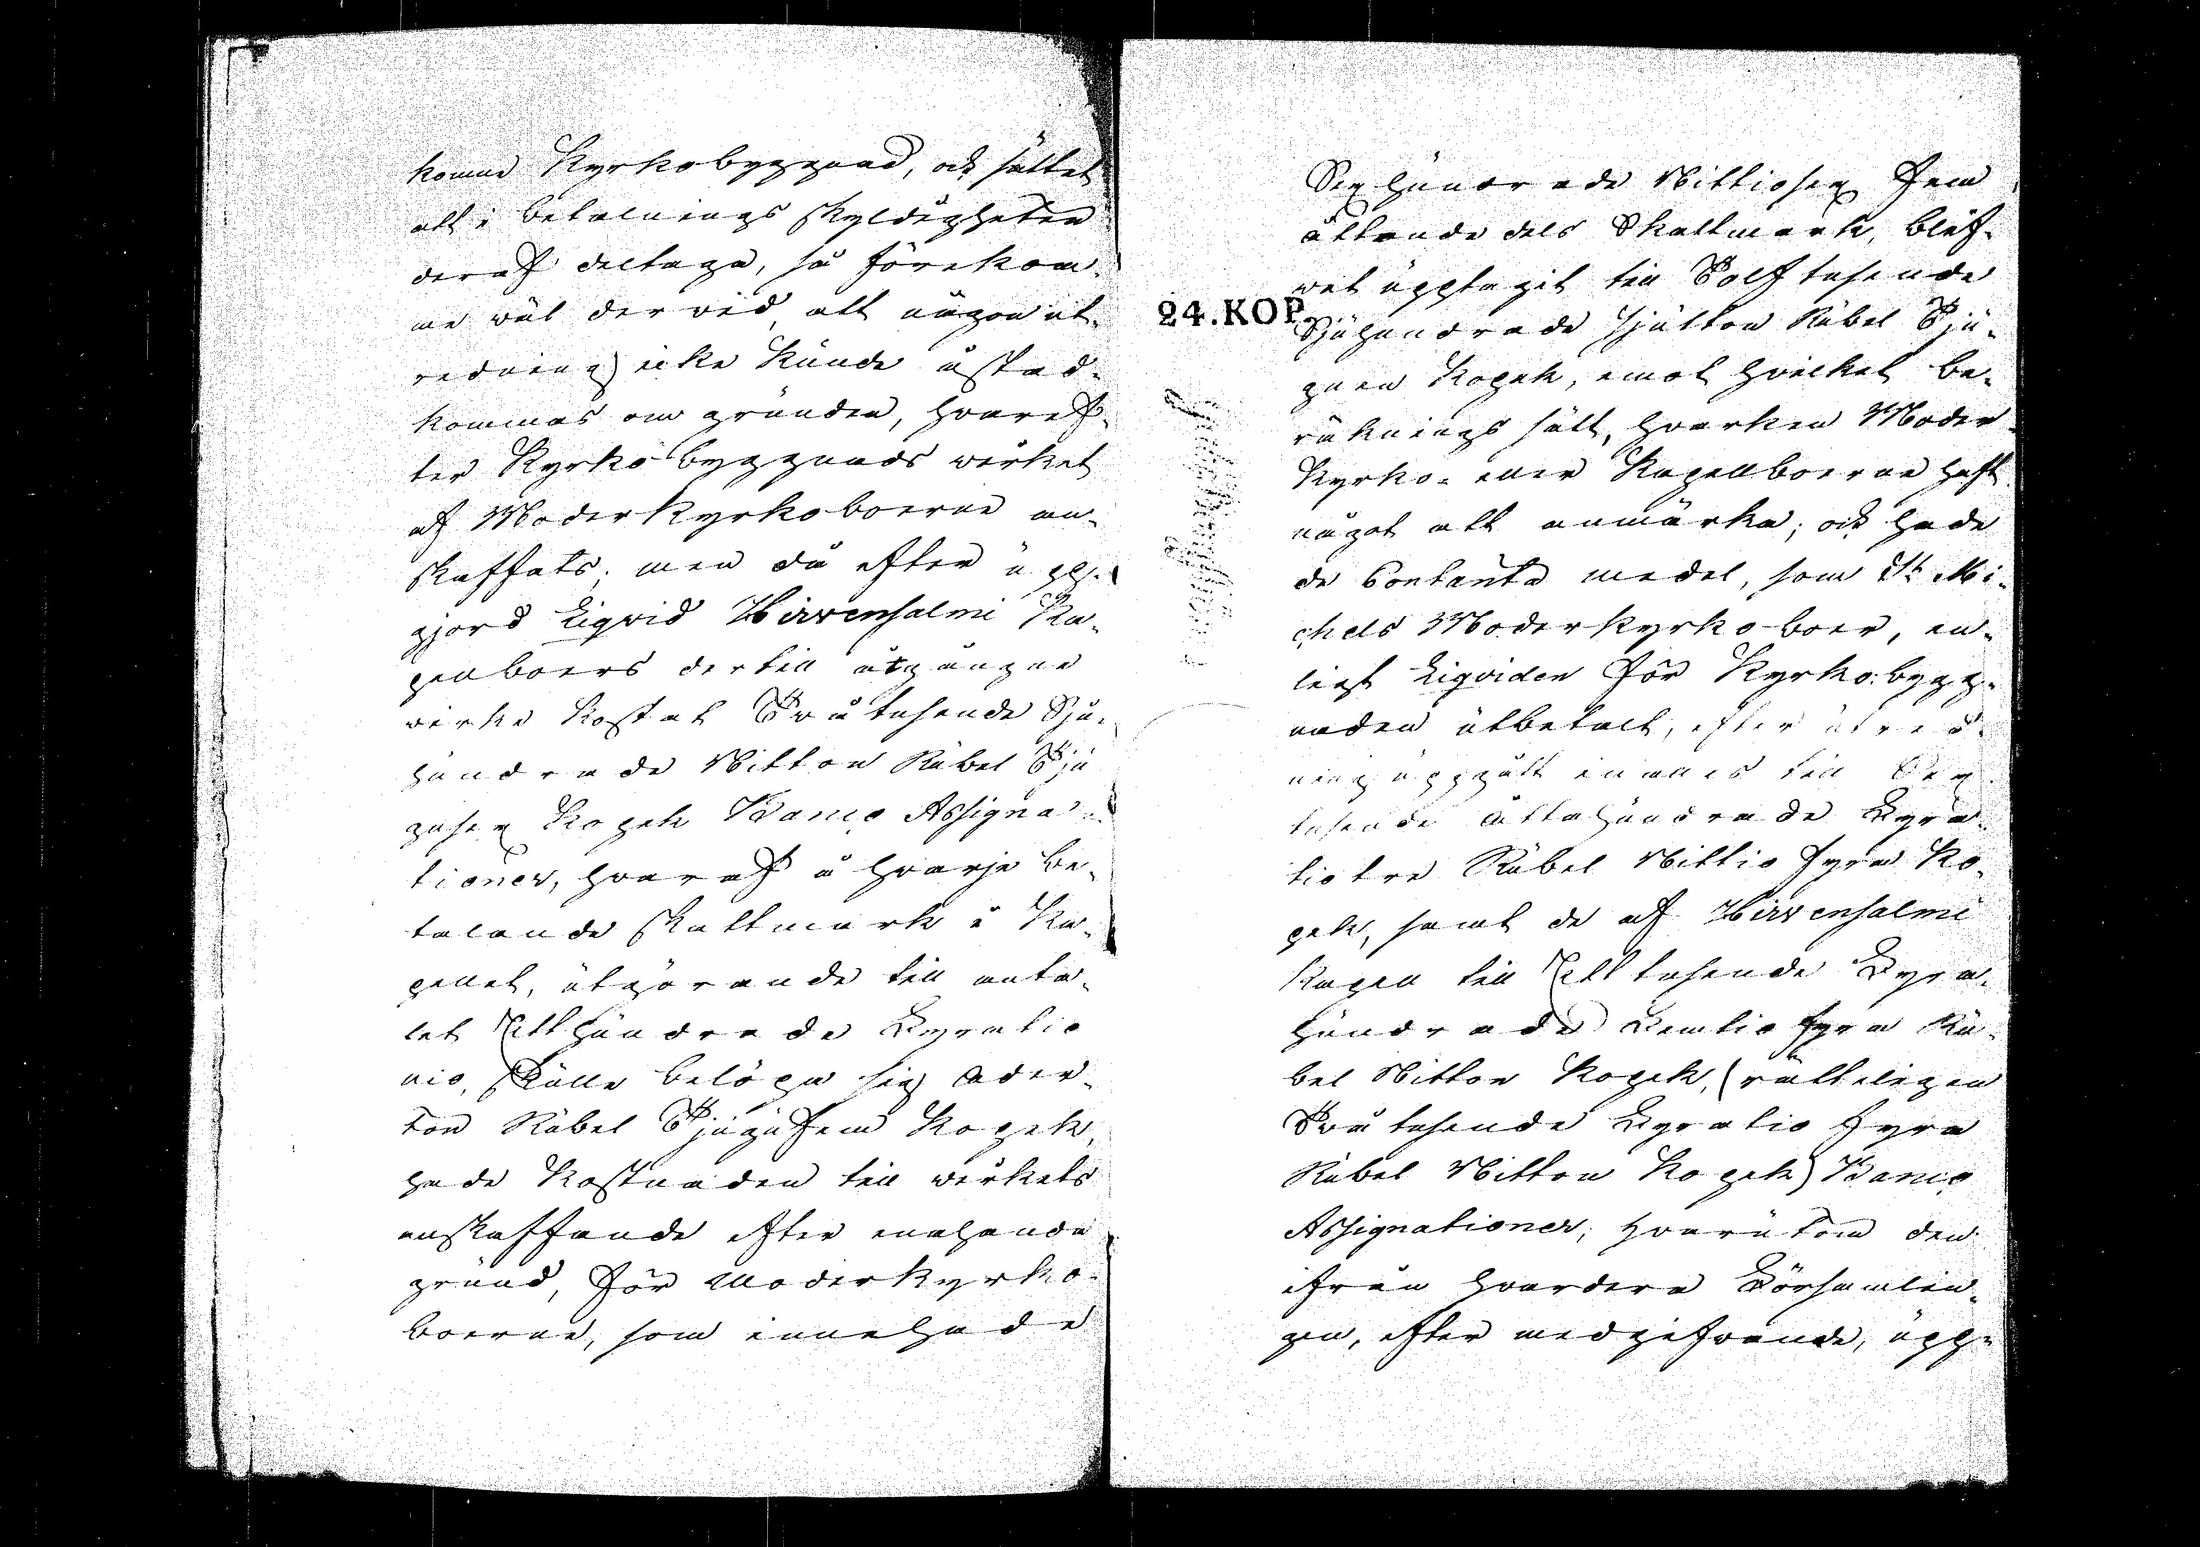 komne Kyrkobyggnad, och sättet
att i betalnings skyldigheten
deraf deltaga, så förekom-
me wäl der vid, att någon ut-
redning icke kunde åstad-
kommas om grunden, hvaref-
ter Kyrkobyggnads wirket
af Moderkyrkoboerne an-
skaffats; men då efter upp-
gjord Liqvid Hirvensalmi Ka-
pellboers dertill utgångne
virke kostat Två tusende Sju-
hundrade Nitton Rubel Tju-
gusex Kopek Banco Assigna-
tioner, hvaraf å hvarje be-
talande skattmark i Ka-
pellet, utgörande till anta-
let Etthundrade Fyratio
nio, skulle belöpa sig Ader-
ton Rubel Tjugufem Kopek,
hade Kostnaden till wirkets
anskaffande efter enahanda
grund, för Moderkyrko-
boerne, som innehade
Sexhundrade Nittiosex Fem
åttondedels Skattmark, blif-
wit upptagit till Tolftusende
Sjuhundrade Sjutton Rubel Tju-
guen Kopek, emot hvilket be-
räknings sätt, hvarken Moder-
Kyrko- eller Kapellboerne haft
något att anmärka; och hade
de Contanta medel, som St Mi-
chels Moderkyrko-boer, en-
ligt Liqviden för Kyrko-bygg-
naden utbetalt, efter utred-
ning uppgått in alles till Sex
tusende Åttahundrade Fyra-
tiotre Rubel Nittio fyra Ko-
pek, samt de af Hirvensalmi
Kapell till Ett tusende Fyra-
hundrade Femtio fyra Ru-
bel Nitton Kopek, (rätteligen
Två tusende Fyratio fyra
Rubel Nitton Kopek) Banco
Assignationer; hvarutom den
ifrån hvardera Församlin-
gen, efter medgifvande, upp-
24.KOP.